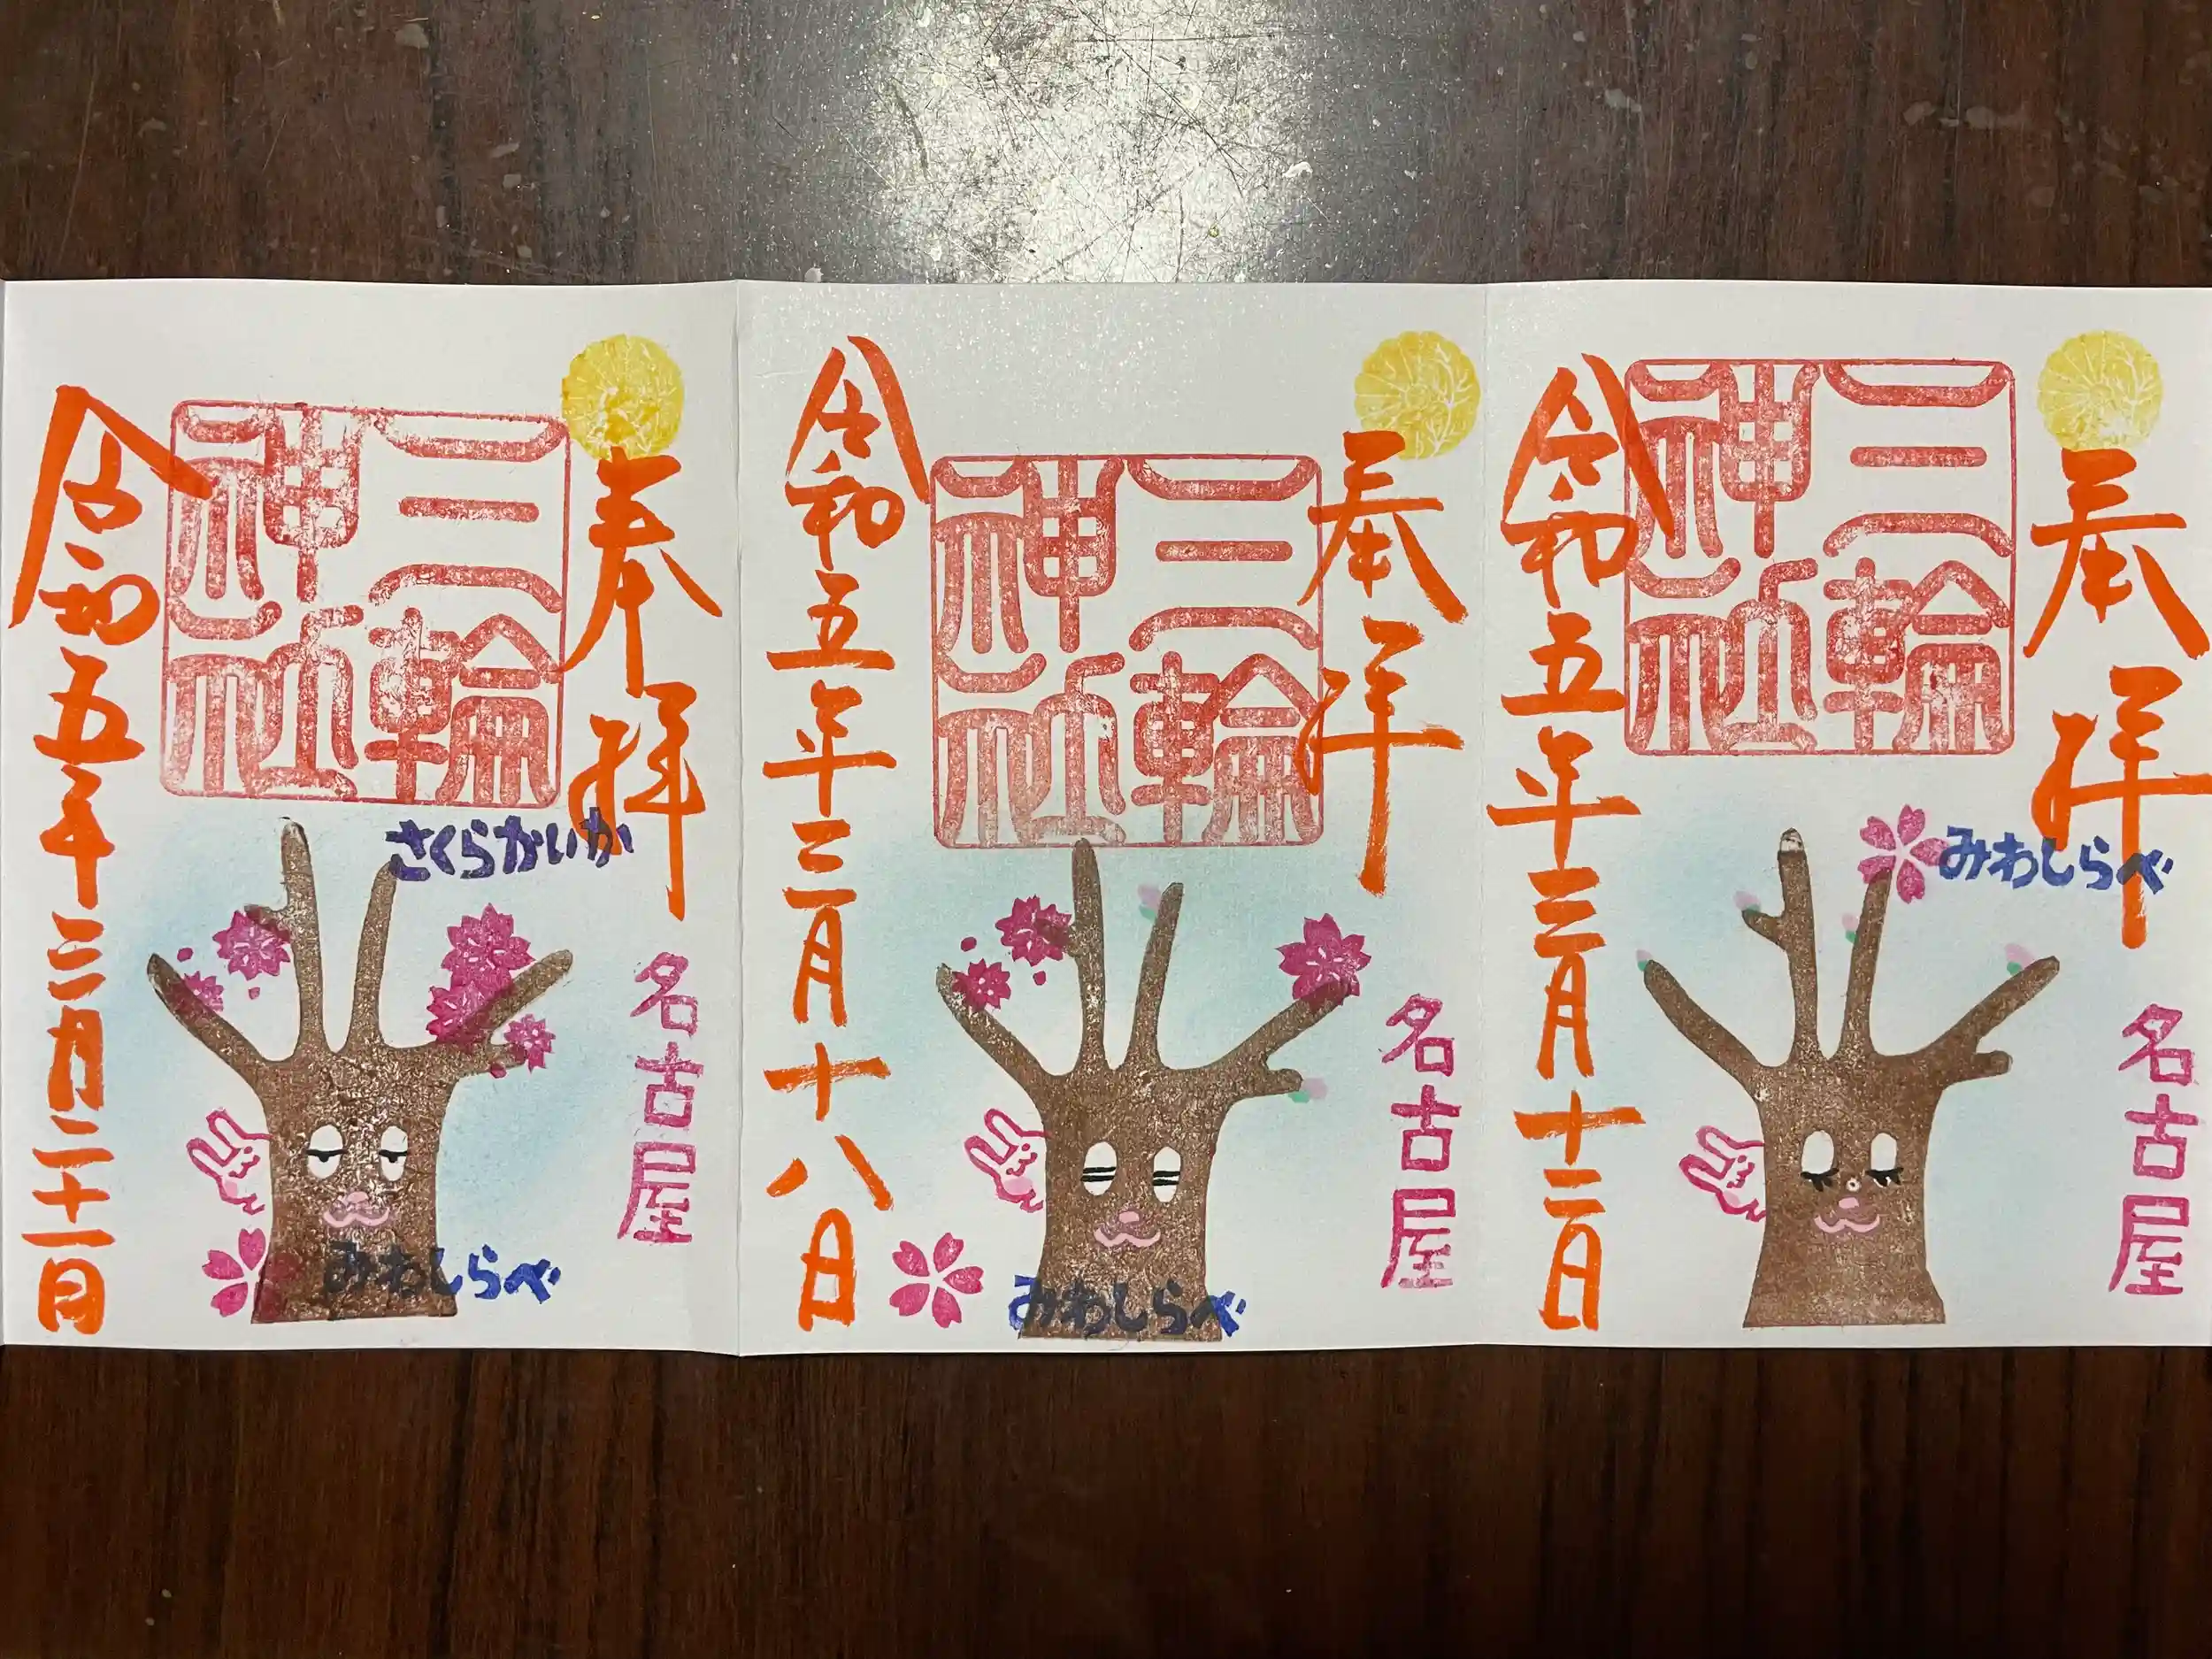 奉拝
三輪
神社
さくらかいか
名古屋
みわしらべ
令和五年三月二十一日
奉拝
三輪
神社
名古屋
みわしらべ
令和五年三月十八日
奉拝
三輪
神社
みわしらべ
名古屋
令和五年三月十二日